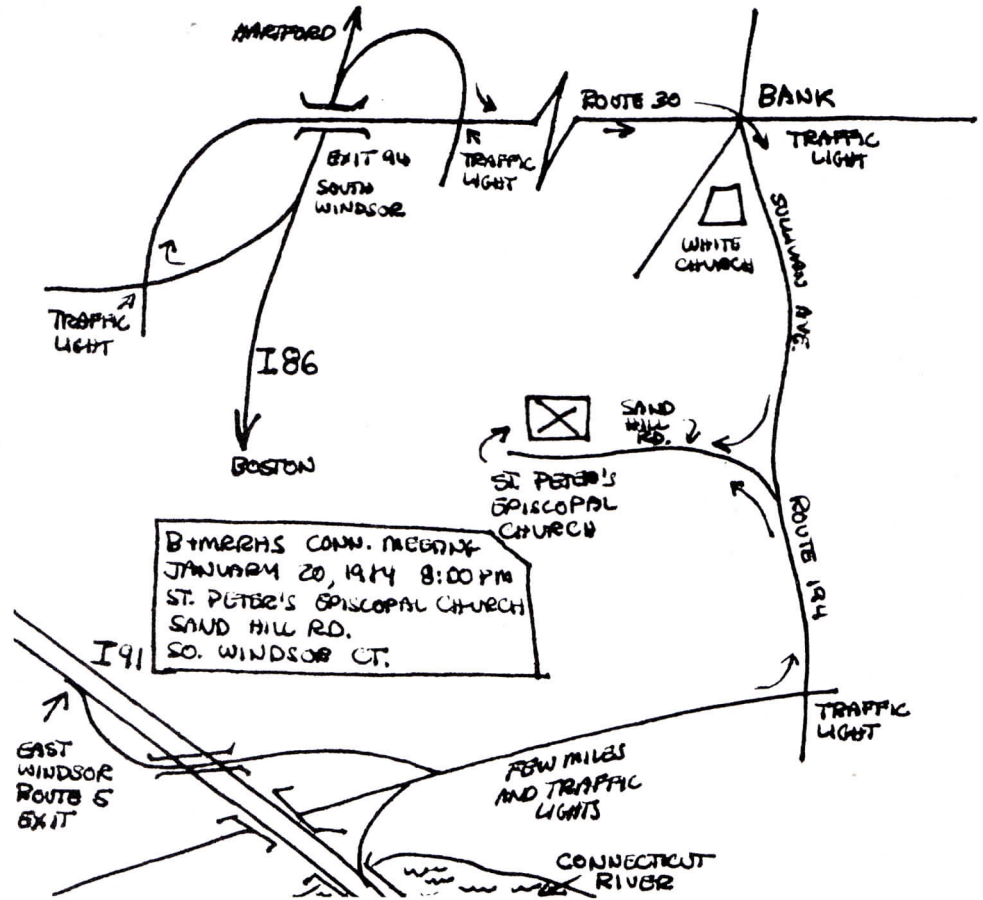 HARTFORD
ROUTE 30
BANK
TRAFFIC
LIGHT
EXIT 94
SOUTH
WINDSOR
TRAFFIC
LIGHT
WHITE
CHURCH
SULLIVAN AVE.
TRAFFIC
LIGHT
I86
BOSTON
SAND
HILL
RD.
ST. PETER'S
EPISCOPAL
CHURCH
ROUTE 194
B+MRRHS CONN. MEETING
JANUARY 20, 1984 8:00 PM
ST. PETER'S EPISCOPAL CHURCH
SAND HILL RD.
SO. WINDSOR CT.
I91
TRAFFIC
LIGHT
EAST
WINDSOR
ROUTE 5
EXIT
FEW MILES
AND TRAFFIC
LIGHTS
CONNECTICUT
RIVER